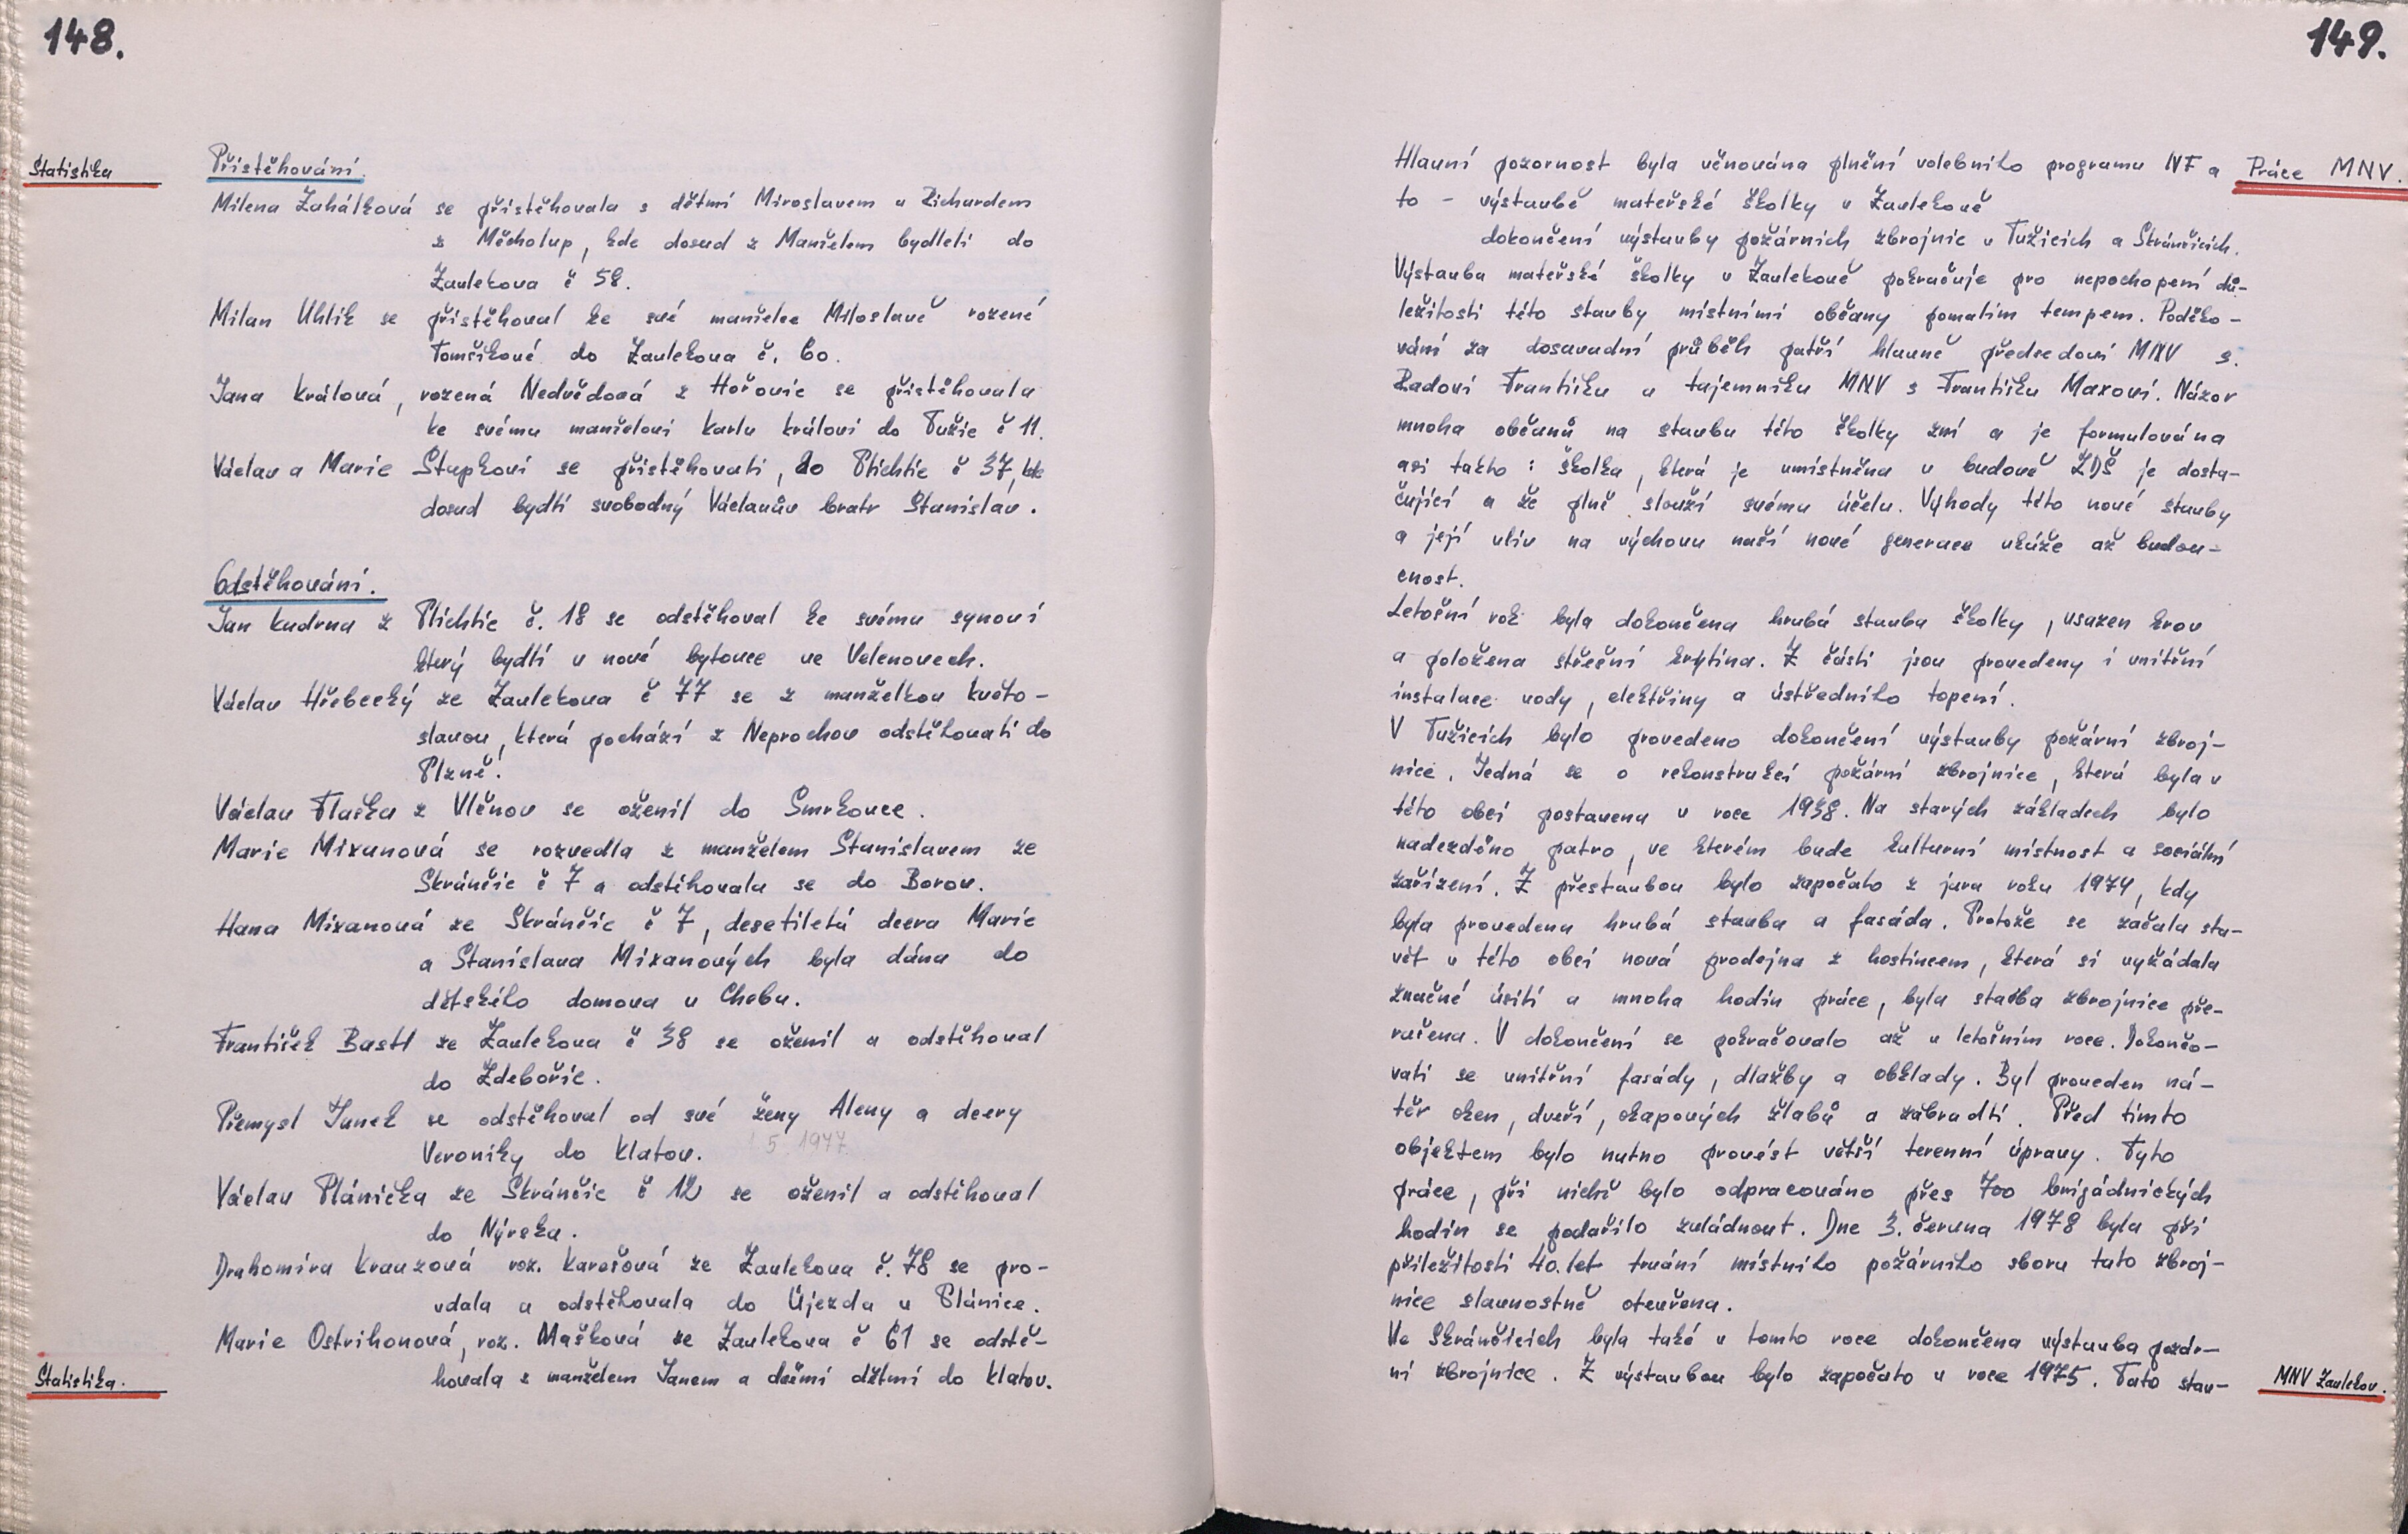 148.
Statistika
Přistěhování.
Milena Zahálková se přistěhovala s dětmi Miroslavem a Richardem
z Měcholup, kde dosud z Manželem bydleli do
Zavlekova č 58.
Milan Uhlík se přistěhoval ke své manželce Miloslavě rozené
Tomšíkové do Zavlekova č. 60.
Jana Králová, rozená Nedvědová z Hořovic se přistěhovala
ke svému manželovi Karlu Královi do Tužic č 11.
Václav a Marie Stupkovi se přistěhovali, do Plichtic č 37, kde
dosud bydlí svobodný Václavův bratr Stanislav.
Odstěhování.
Jan Kudrna z Plichtic č. 18 se odstěhoval ke svému synovi
který bydlí v nové bytovce ve Velenovech.
Václav Hřebecký ze Zavlekova č 77 se z manželkou Květo-
slavou, která pochází z Neprochov odstěhovali do
Plzně.
Václav Flaška z Vlčnov se oženil do Smrkovce.
Marie Mixanová se rozvedla z manželem Stanislavem ze
Skránčic č 7 a odstěhovala se do Borov.
Hana Mixanová ze Skránčic č 7, desetiletá dcera Marie
a Stanislava Mixanových byla dána do
dětského domova u Chebu.
František Bastl ze Zavlekova č 38 se oženil a odstěhoval
do Zdebořic.
Přemysl Janek se odstěhoval od své ženy Aleny a dcery
Veroniky do Klatov. 1 5 1977
Václav Plánička ze Skránčic č 12 se oženil a odstěhoval
do Nýrska.
Drahomíra Krauzová roz. Karešová ze Zavlekova č. 78 se pro-
vdala a odstěhovala do Újezda u Plánice.
Marie Ostrihonová, roz. Mašková ze Zavlekova č 61 se odstě-
hovala s manželem Janem a dětmi do Klatov.
Statistika.
149.
Práce MNV.
Hlavní pozornost byla věnována plnění volebního programu NF a
to - výstavbě mateřské školky v Zavlekově
dokončení výstavby požárních zbrojnic v Tužicích a Skránčicích.
Výstavba mateřské školky v Zavlekově pokračuje pro nepochopení dů-
ležitosti této stavby místními občany pomalím tempem. Poděko-
vání za dosavadní průběh patří hlavně předsedovi MNV s.
Radovi Františku a tajemníku MNV s Františku Maxovi. Názor
mnoha občanů na stavbu této školky zní a je formulována
asi takto: školka, která je umístněna v budově ZDŠ je dosta-
čující a že plně slouží svému účelu. Výhody této nové stavby
a její vliv na výchovu naší nové generace ukáže až budou-
cnost.
Letošní rok byla dokončena hrubá stavba školky, usazen krov
a položena střešní krytina. Z části jsou provedeny i vnitřní
instalace vody, elektřiny a ústředního topení.
V Tužicích bylo provedeno dokončení výstavby požární zbroj-
nice. Jedná se o rekonstrukci požární zbrojnice, která byla v
této obci postavena v roce 1938. Na starých základech bylo
nadezděno patro, ve kterém bude kulturní místnost a sociální
zařízení. Z přestavbou bylo započato z jara roku 1974, kdy
byla provedena hrubá stavba a fasáda. Protože se začala sta-
vět v této obci nová prodejna z hostincem, která si vyžádala
značné úsilí a mnoha hodin práce, byla stavba zbrojnice pře-
rušena. V dokončení se pokračovalo až v letošním roce. Dokončo-
vali se vnitřní fasády, dlažby a obklady. Byl proveden ná-
těr oken, dveří, okapových žlabů a zábradlí. Před tímto
objektem bylo nutno provést větší terenní úpravy. Tyto
práce, při nichž bylo odpracováno přes 700 brigádnických
hodin se podařilo zvládnout. Dne 3. června 1978 byla při
příležitosti 40. let trvání místního požárního sboru tato zbroj-
nice slavnostně otevřena.
Ve Skránčicích byla také v tomto roce dokončena výstavba požár-
ní zbrojnice. Z výstavbou bylo započato v roce 1975. Tato stav-
MNV Zavlekov.